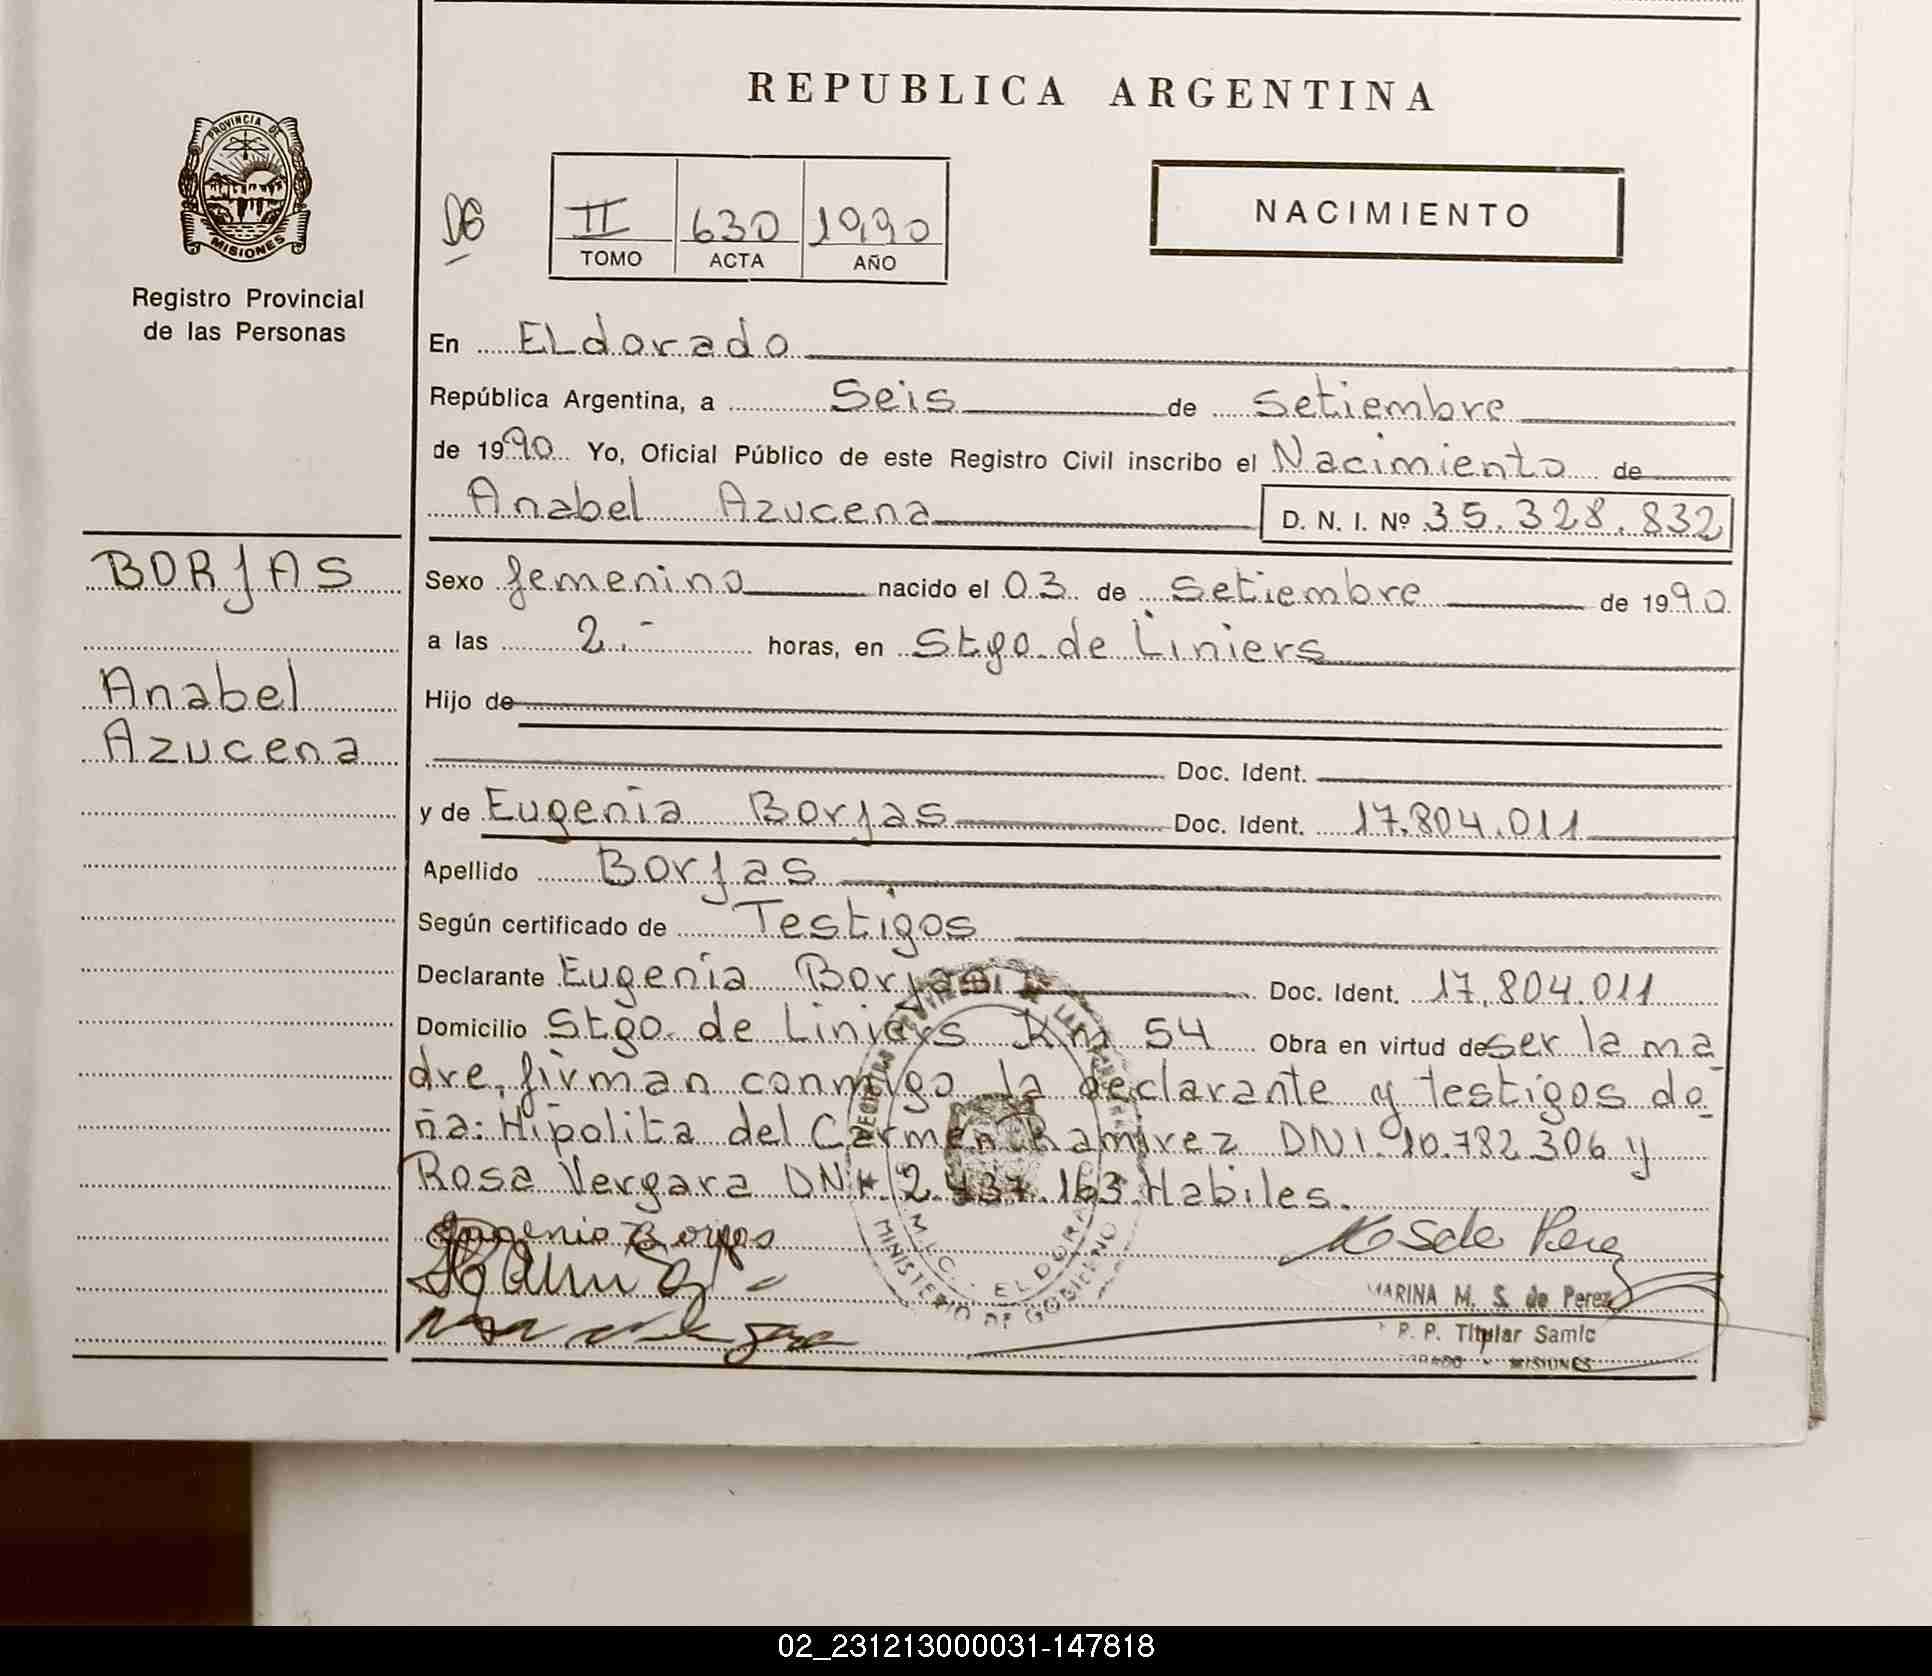 REPUBLICA ARGENTINA
PROVINCIA DE
MISIONES
Registro Provincial
de las Personas
DG
II 630 1990
TOMO ACTA AÑO
NACIMIENTO
En ELdorado
República Argentina, a Seis de Setiembre
de 1990 Yo, Oficial Público de este Registro Civil inscribo el Nacimiento de
Anabel Azucena D. N. I. Nº 35.328.832
BORJAS
Anabel
Azucena
Sexo femenino nacido el 03 de Setiembre de 1990
a las 2.- horas, en Stgo de Liniers
Hijo de
Doc. Ident.
y de Eugenia Borjas Doc. Ident. 17.804.011
Apellido Borjas
Según certificado de Testigos
Declarante Eugenia Borjas Doc. Ident. 17.804.011
Domicilio Stgo. de Liniers Km 54 Obra en virtud de ser la ma
dre, firman conmigo la declarante y testigos do
ña: Hipolita del Carmen Ramirez DNI. 10.782.306 y
Rosa Vergara DNI 2.437.163 Habiles.
Eugenia Borjas
M S de Perez
MARINA M. S. de Perez
R. P. Titular Samic
MISIONES
MINISTERIO DE GOBIERNO
ELDORADO
02_231213000031-147818